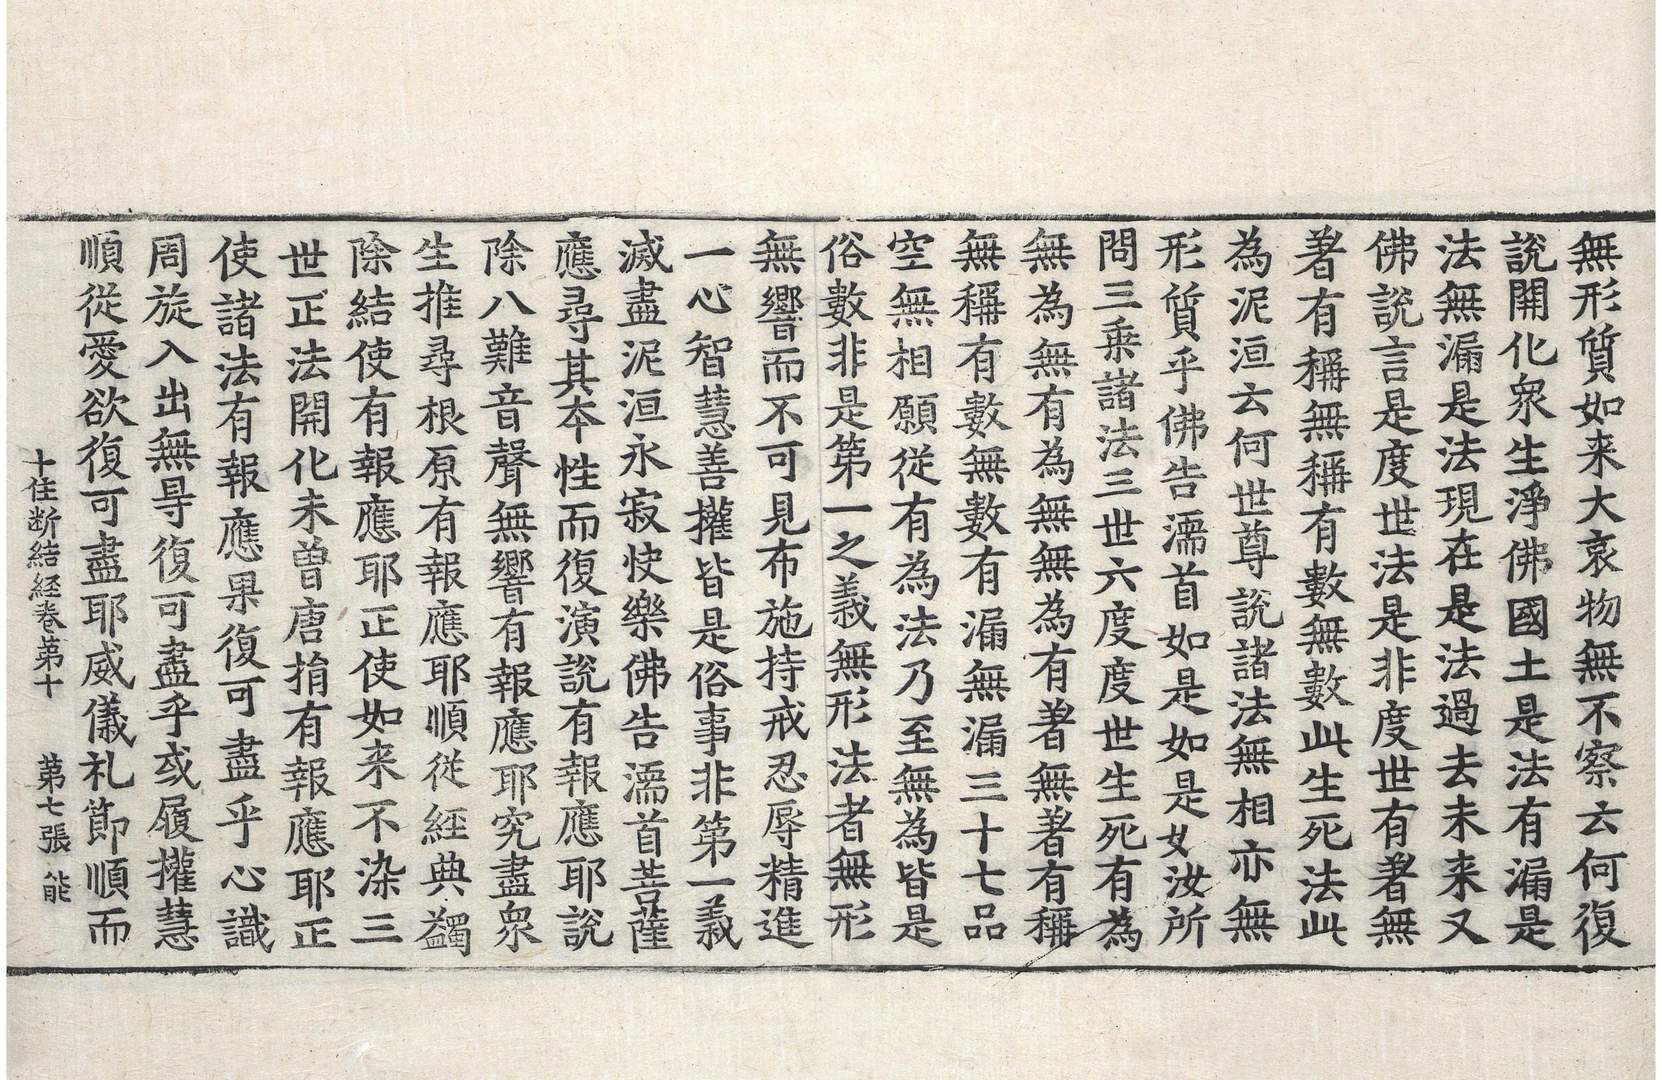 無形質如来大哀物無不察云何復
說開化衆生淨佛國土是法有漏是
法無漏是法現在是法過去未来又
佛說言是度世法是非度世有著無
著有稱無稱有數無數此生死法此
為泥洹云何世尊說諸法無相亦無
形質乎佛告濡首如是如是女汝所
問三乗諸法三世六度度世生死有為
無為無有為無無為有著無著有稱
無稱有數無數有漏無漏三十七品
空無相願從有為法乃至無為皆是
俗數非是第一之義無形法者無形
無響而不可見布施持戒忍辱精進
一心智慧善權皆是俗事非第一義
滅盡泥洹永寂快樂佛告濡首菩薩
應尋其本性而復演說有報應耶說
除八難音聲無響有報應耶究盡衆
生推尋根原有報應耶順從經典蠲
除結使有報應耶正使如来不染三
世正法開化未曽唐捐有報應耶正
使諸法有報應果復可盡乎心識
周旋入出無㝵復可盡乎或履權慧
順從愛欲復可盡耶威儀礼節順而
十住断結経巻第十　第七張　能